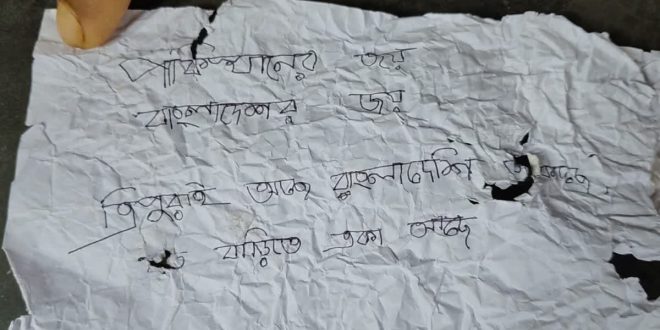 পাকিস্থানের জয়
বাংলাদেশের জয়
ত্রিপুরাই আছে বাংলাদেশি
বাড়িতে একা আছে